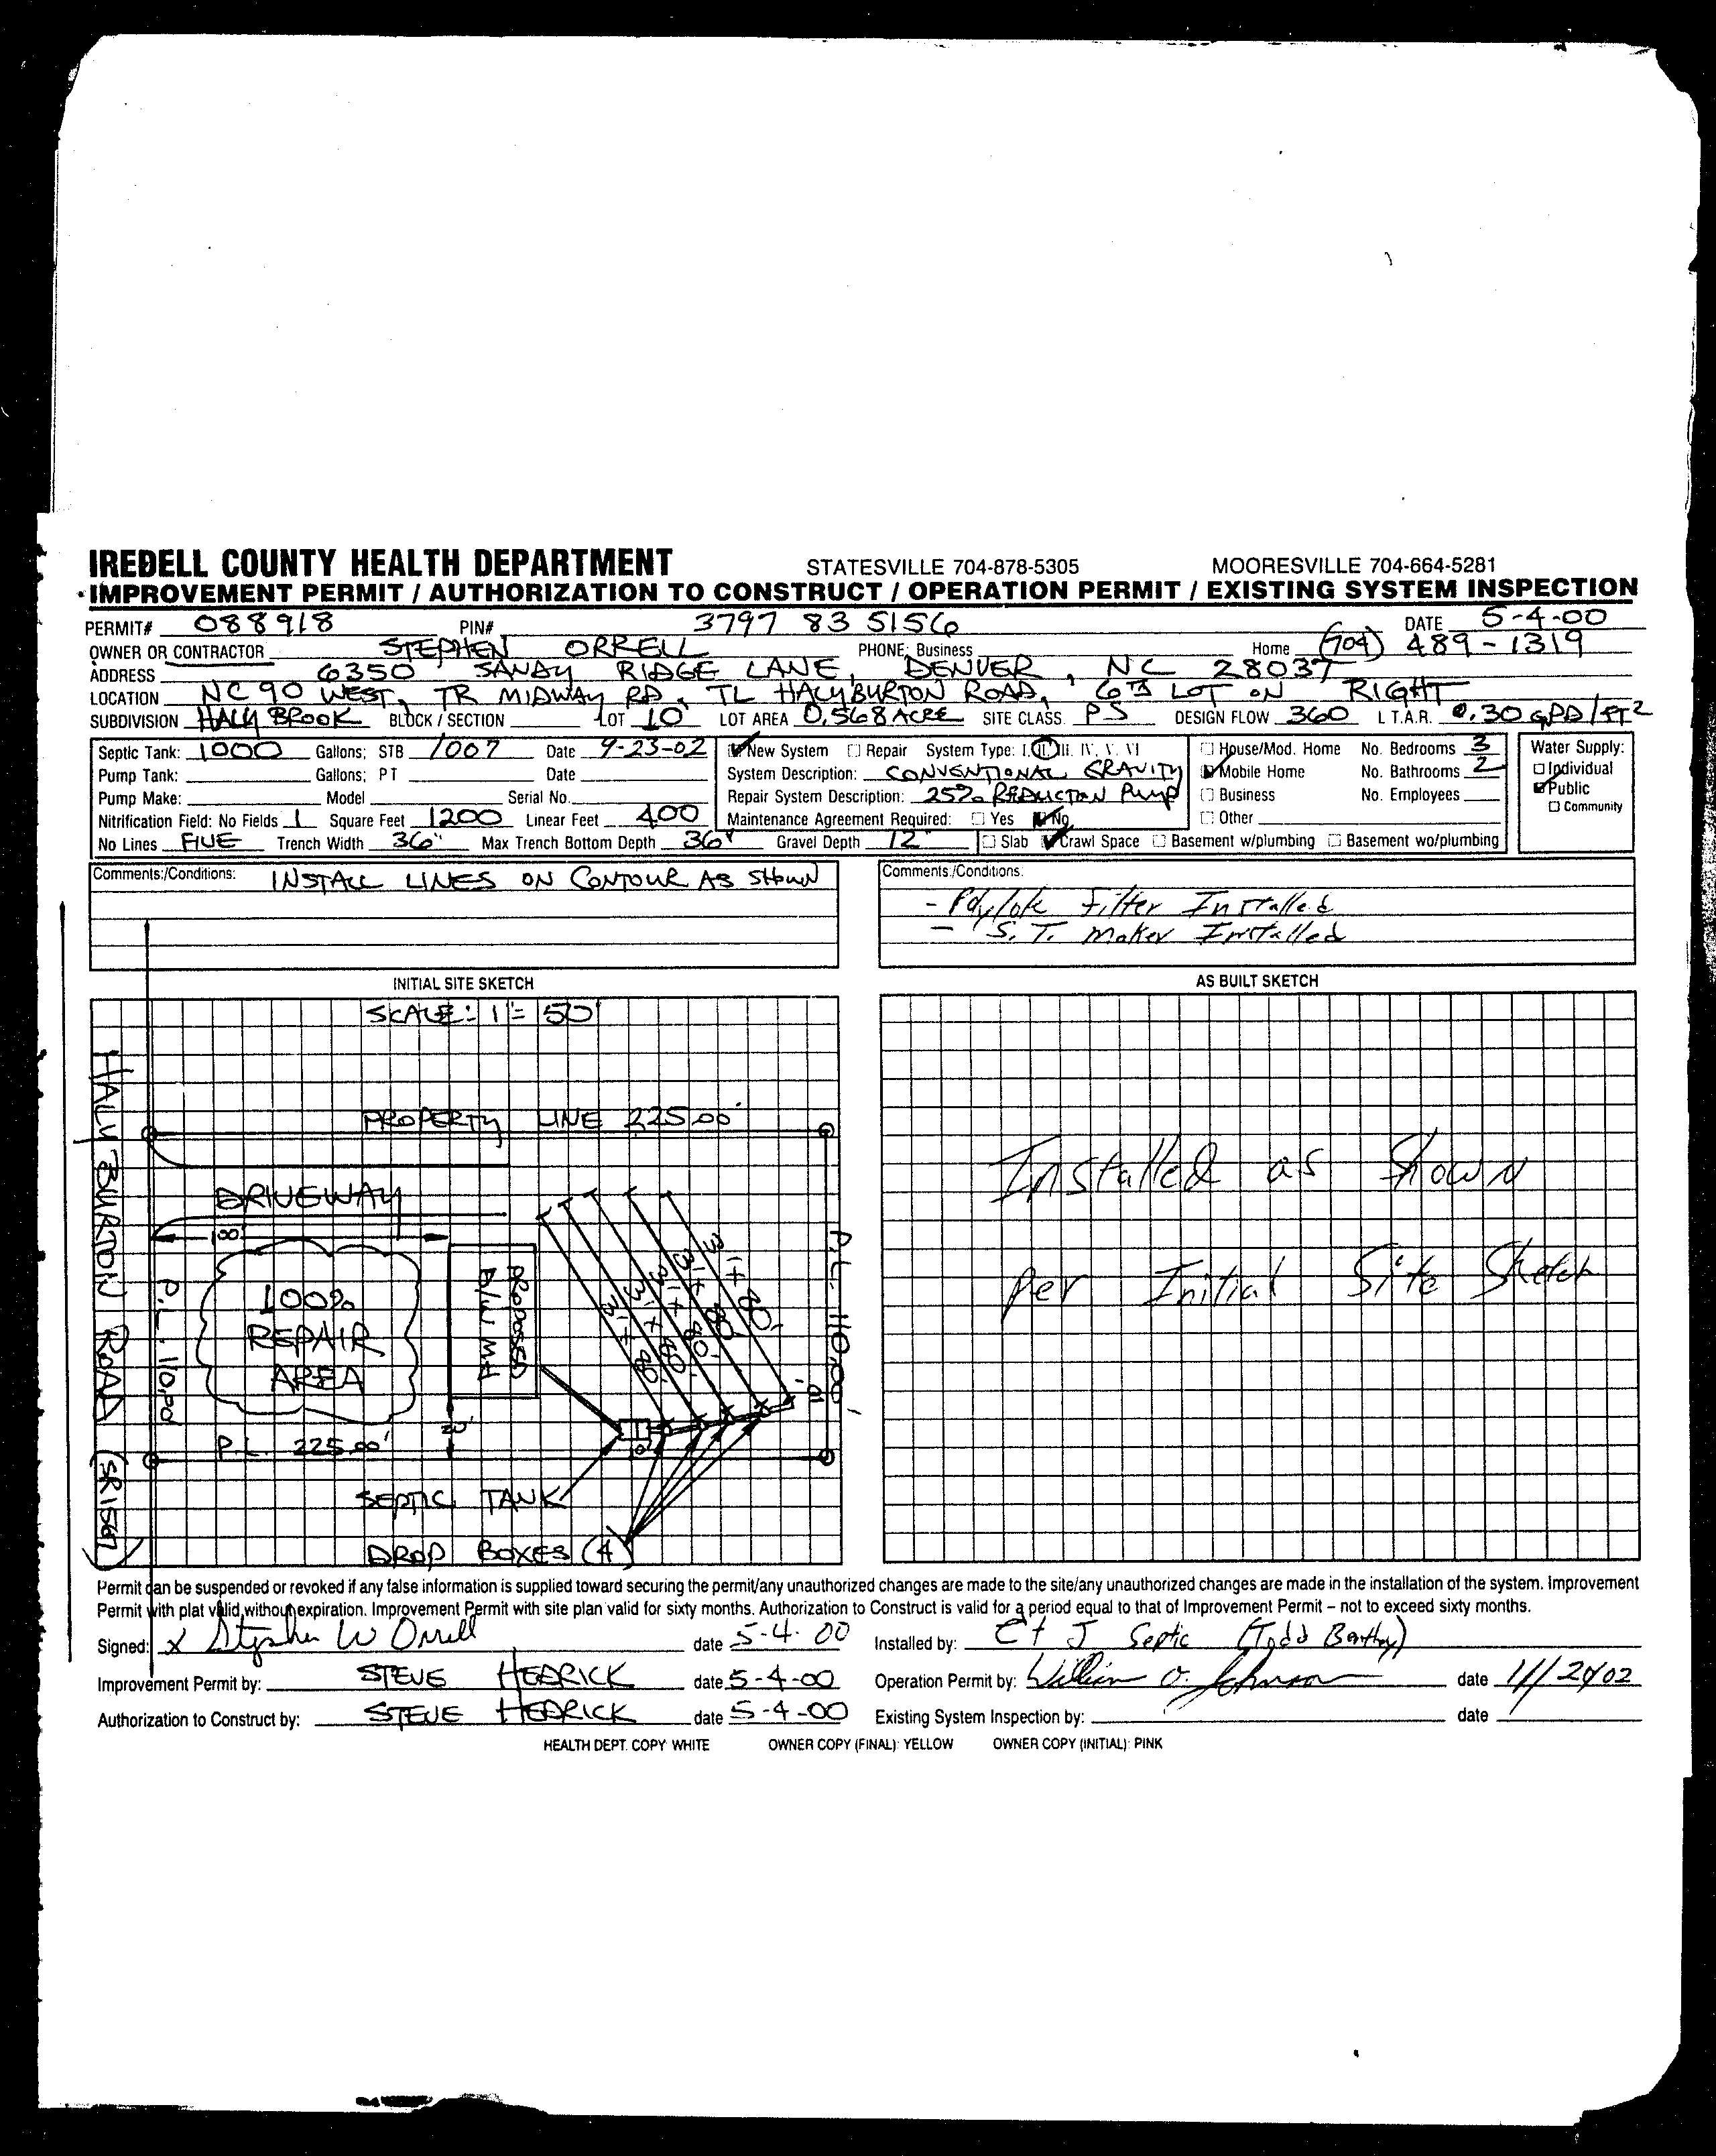 IREDELL COUNTY HEALTH DEPARTMENT STATESVILLE 704-878-5305 MOORESVILLE 704-664-5281
IMPROVEMENT PERMIT / AUTHORIZATION TO CONSTRUCT / OPERATION PERMIT / EXISTING SYSTEM INSPECTION
PERMIT# 088918 PIN# 3797 83 5156 DATE 5-4-00
OWNER OR CONTRACTOR STEPHEN ORRELL PHONE: Business Home (704) 489-1319
ADDRESS 6350 SANDY RIDGE LANE, DENVER, NC 28037
LOCATION NC 90 WEST, TR MIDWAY RD, TL HALYBURTON ROAD, 6TH LOT ON RIGHT
SUBDIVISION HALY BROOK BLOCK / SECTION LOT 10 LOT AREA 0.568 ACRE SITE CLASS PS DESIGN FLOW 360 L T.A.R. 0.30 GPD/FT2
Septic Tank: 1000 Gallons; STB 1007 Date 9-23-02
Pump Tank: Gallons; PT Date
Pump Make: Model Serial No.
Nitrification Field: No Fields 1 Square Feet 1200 Linear Feet 400
No Lines FIVE Trench Width 36" Max Trench Bottom Depth 36" Gravel Depth 12"
New System Repair System Type: I. II. III. IV. V. VI
System Description: CONVENTIONAL GRAVITY
Repair System Description: 25% REDUCTION PUMP
Maintenance Agreement Required: Yes No
Slab Crawl Space Basement w/plumbing Basement wo/plumbing
House/Mod. Home No. Bedrooms 3
Mobile Home No. Bathrooms 2
Business No. Employees
Other
Water Supply:
Individual
Public
Community
Comments:/Conditions: INSTALL LINES ON CONTOUR AS SHOWN
Comments:/Conditions:
- Polylok Filter Installed
- S. T. Maker Installed
INITIAL SITE SKETCH
SCALE: 1"= 50'
PROPERTY LINE 225.00'
DRIVEWAY
100%
REPAIR
AREA
PROPOSED
D/W MH
3' x 80'
3' x 80'
3' x 80'
3' x 80'
3' x 80'
P.L. 110.00'
P.L. 110.00'
10'
P.L. 225.00'
SEPTIC TANK
DROP BOXES (4)
HALYBURTON ROAD (SR1567)
AS BUILT SKETCH
Installed as Shown
Per Initial Site Sketch
Permit can be suspended or revoked if any false information is supplied toward securing the permit/any unauthorized changes are made to the site/any unauthorized changes are made in the installation of the system. Improvement
Permit with plat valid without expiration. Improvement Permit with site plan valid for sixty months. Authorization to Construct is valid for a period equal to that of Improvement Permit – not to exceed sixty months.
Signed: x Stephen W Orrell date 5-4-00 Installed by: C+J Septic (Todd)
Improvement Permit by: STEVE HEDRICK date 5-4-00 Operation Permit by: William O. Johnson date
Authorization to Construct by: STEVE HEDRICK date 5-4-00 Existing System Inspection by: date
HEALTH DEPT. COPY: WHITE OWNER COPY (FINAL): YELLOW OWNER COPY (INITIAL): PINK